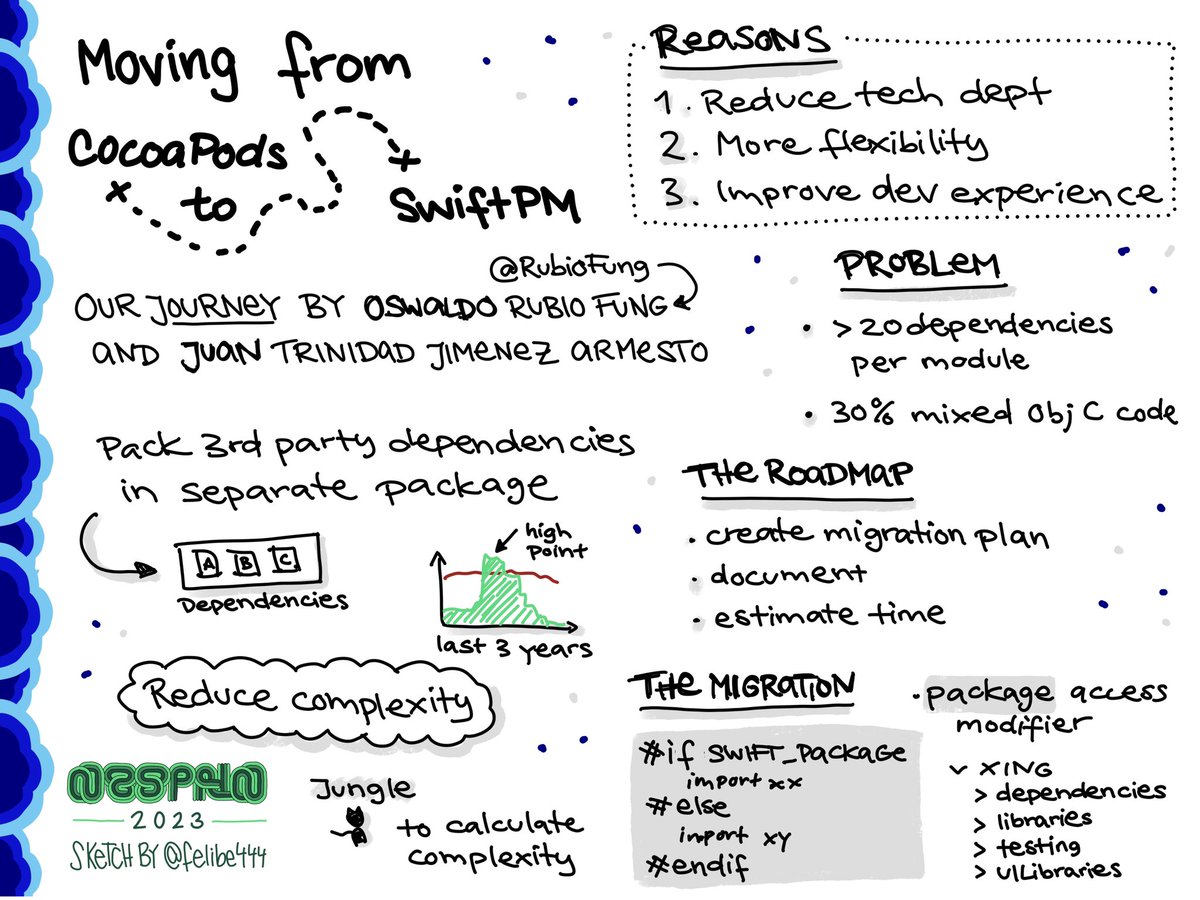 Moving from
CocoaPods
to
SwiftPM
@RubioFung
OUR JOURNEY BY OSWALDO RUBIO FUNG
AND JUAN TRINIDAD JIMENEZ ARMESTO
Reasons
1. Reduce tech dept
2. More flexibility
3. Improve dev experience
PROBLEM
• >20 dependencies
per module
• 30% mixed Obj C code
Pack 3rd party dependencies
in separate package
A B C
Dependencies
high
point
last 3 years
Reduce complexity
THE ROADMAP
• create migration plan
• document
• estimate time
THE MIGRATION
#if SWIFT_PACKAGE
import xx
#else
import xy
#endif
• package access
modifier
v XING
> dependencies
> libraries
> testing
> uiLibraries
Jungle
to calculate
complexity
NSSPAIN
2023
SKETCH BY @felibe444